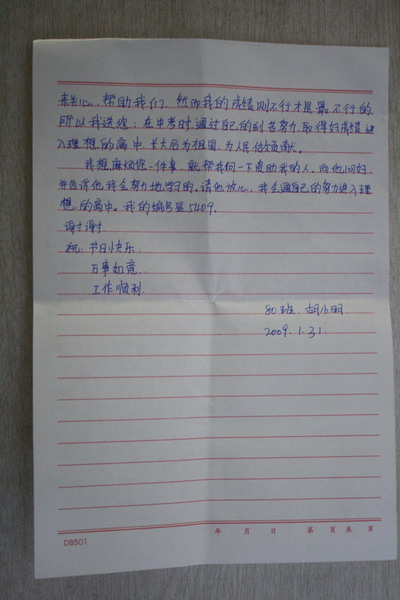 来关心、帮助我们、然而我的成绩则不行才是最不行的
所以我送您：在中考时通过自己的刻苦努力取得好成绩进
入理想的高中、长大后为祖国、为人民做贡献。
我想麻烦您一件事、能帮我问一下资助我的人。向他问好
并告诉他我会努力地学习的、请他放心、我会通自己的努力进入理
想的高中。我的编号是5409.
谢谢
祝：节日快乐
万事如意.
工作顺利.
80班 胡小丽
2009.1.31.
年 月 日 第 页 共 页
D8501